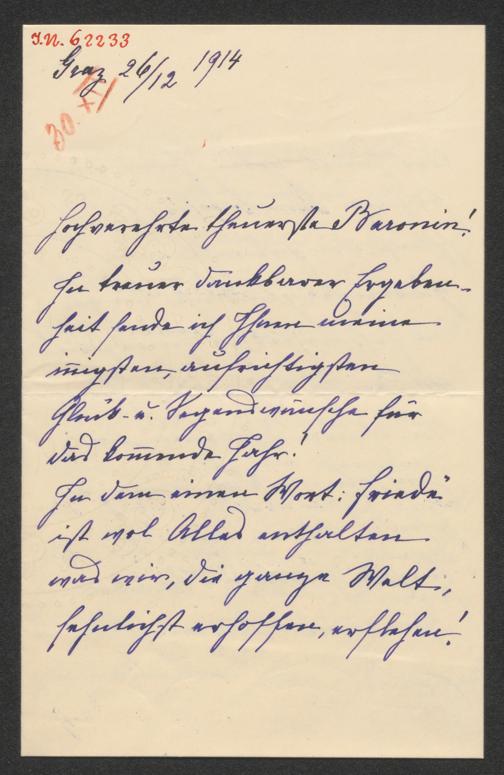 I.N. 62233
Graz 26/12 1914
30. XII
Hochverehrte theuerste Baronin!
In treuer dankbarer Ergeben-
heit sende ich Ihnen meine
innigsten, aufrichtigsten
Glück- u. Segenswünsche für
das kommende Jahr!
In dem einen Wort: Friede
ist wol Alles enthalten
was wir, die ganze Welt,
sehnlichst erhoffen, erflehen!